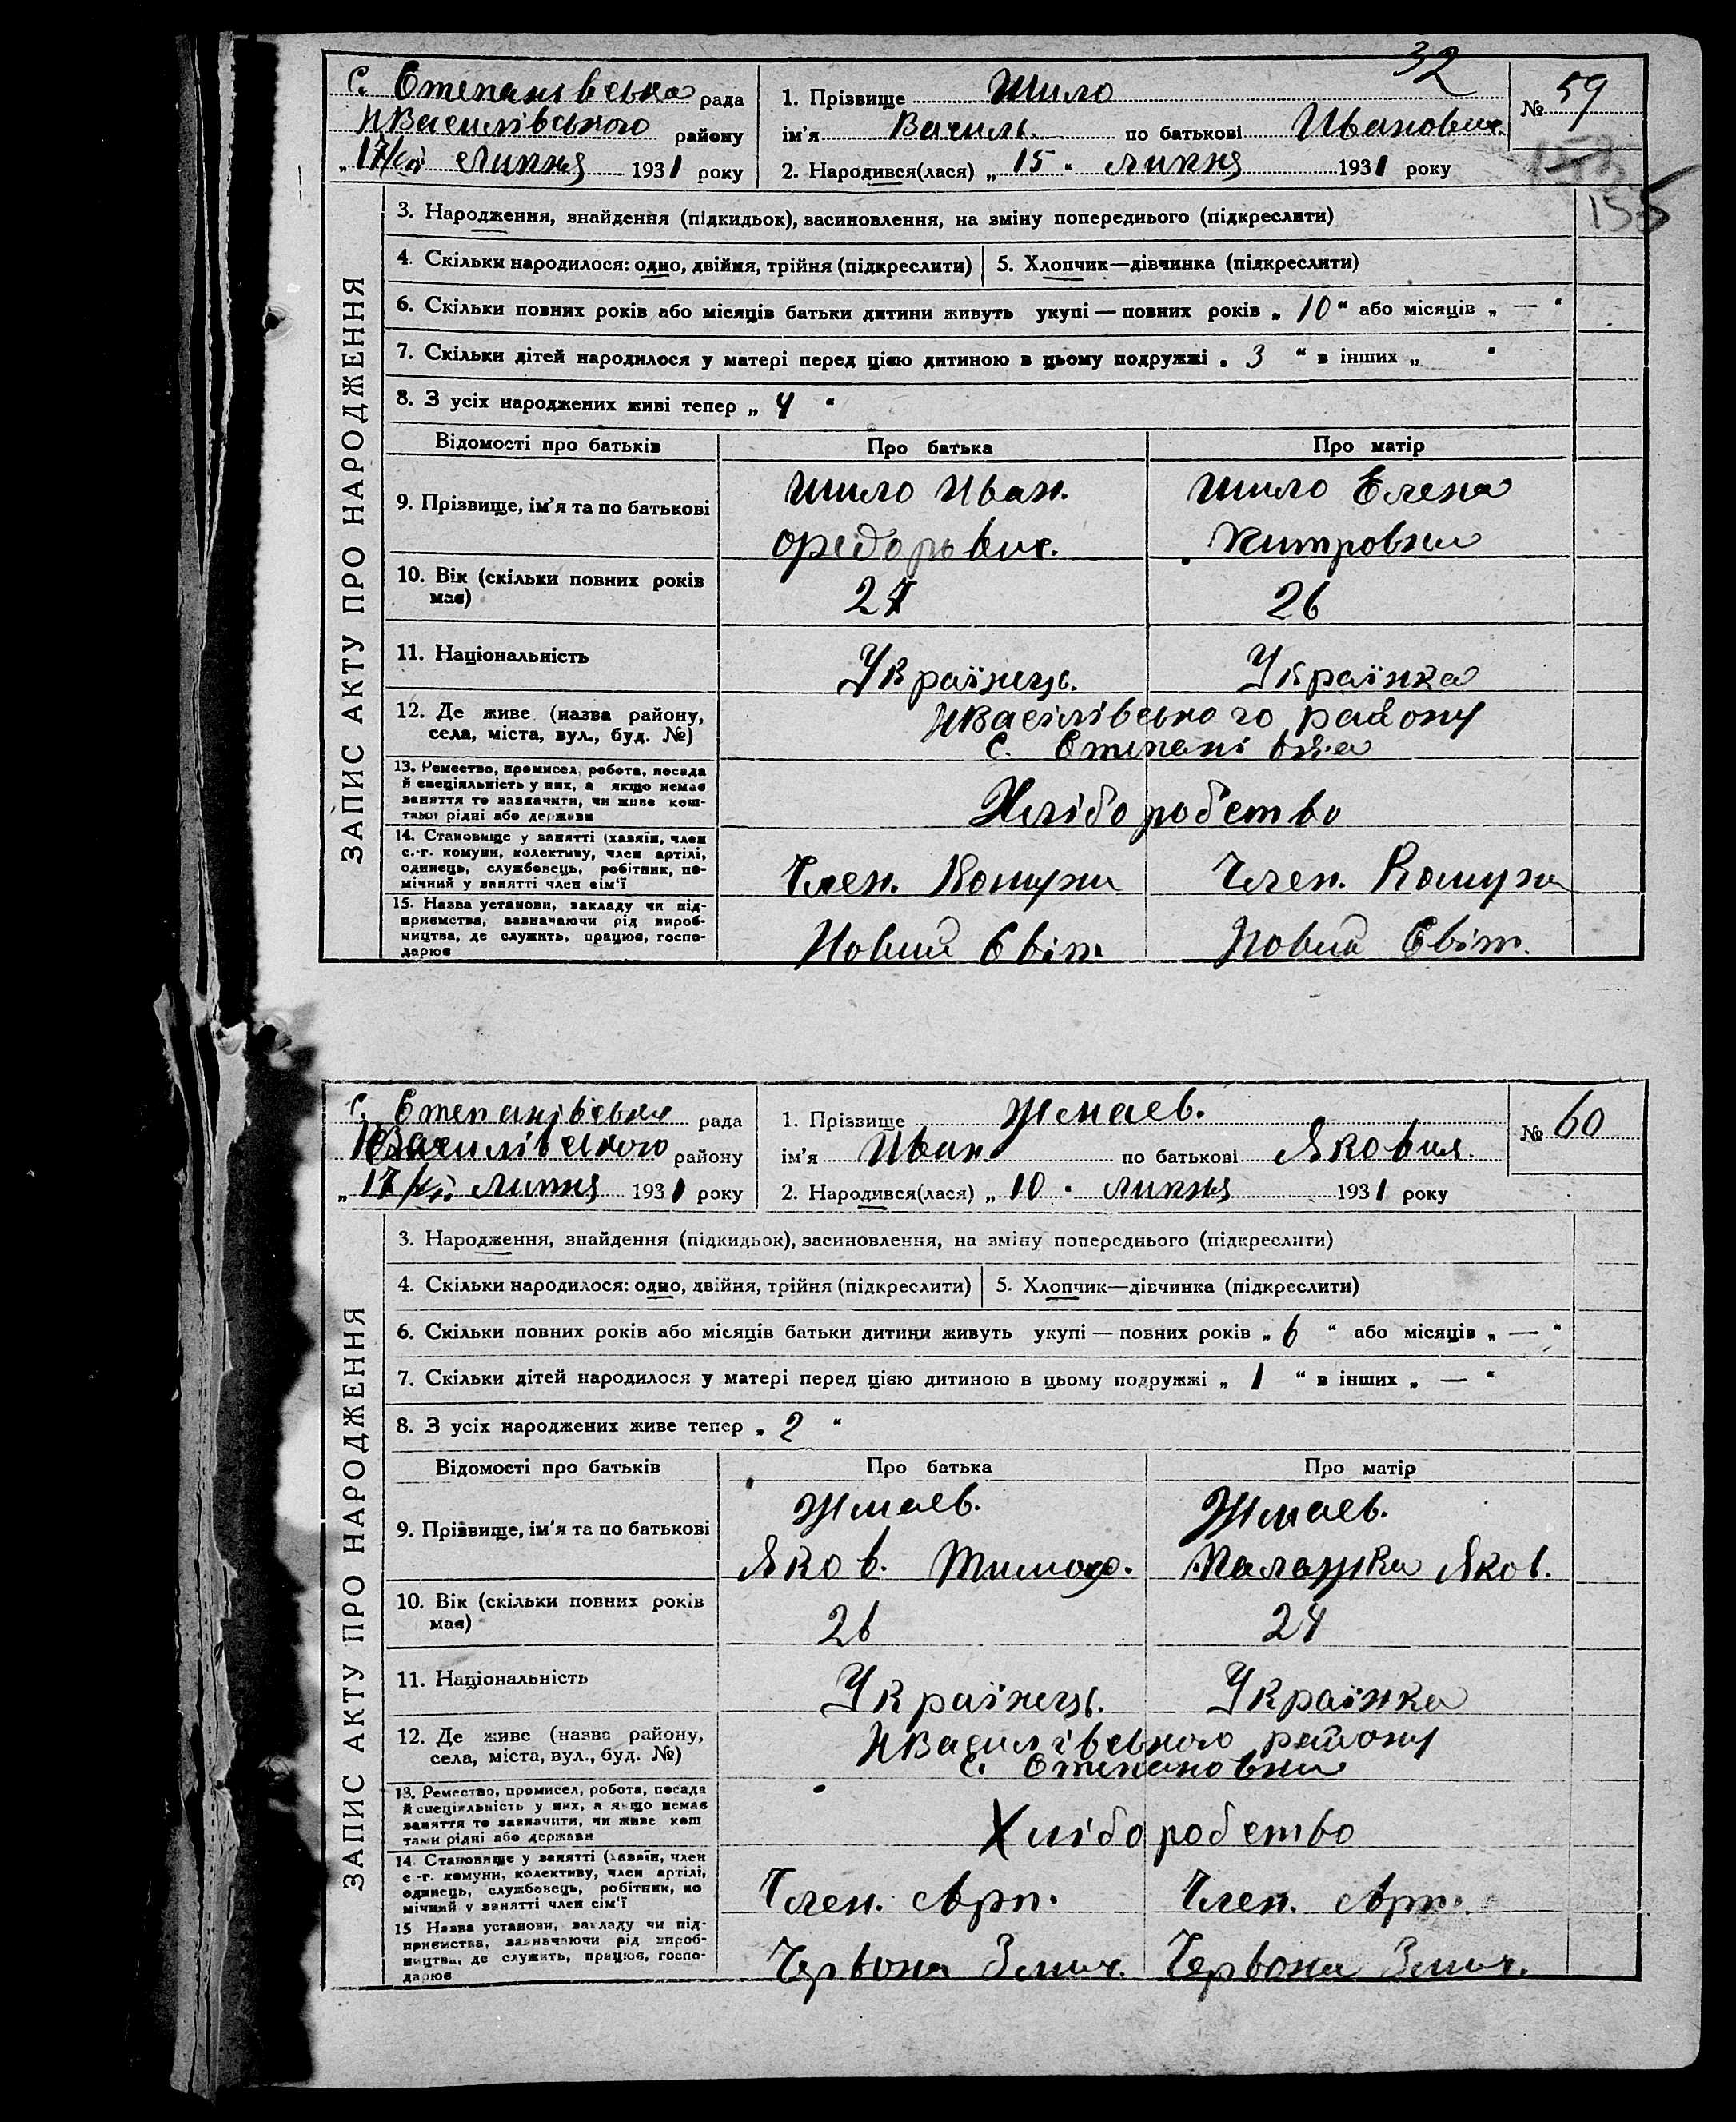 32
С. Степанівська рада
НВасилівського району
„17/VII липня 1931 року
1. Прізвище Шило
ім'я Василь по батькові Иванович.
2. Народився(лася) „ 15 " липня 1931 року
№ 59
155
ЗАПИС АКТУ ПРО НАРОДЖЕННЯ
3. Народження, знайдення (підкидьок), засиновлення, на зміну попереднього (підкреслити)
4. Скільки народилося: одно, двійня, трійня (підкреслити)
5. Хлопчик—дівчинка (підкреслити)
6. Скільки повних років або місяців батьки дитини живуть укупі — повних років „ 10 " або місяців „ — "
7. Скільки дітей народилося у матері перед цією дитиною в цьому подружжі „ 3 " в інших „ "
8. З усіх народжених живі тепер „ 4 "
Відомості про батьків Про батька Про матір
9. Прізвище, ім'я та по батькові
Шило Иван.
Федорович.
Шило Елена
Митровна
10. Вік (скільки повних років має)
27
26
11. Національність
Українець.
Українка
12. Де живе (назва району, села, міста, вул., буд. №)
НВасілівського району
С. Степанівка
13. Ремество, промисел, робота, посада
й спеціяльність у них, а якщо немає
заняття то зазначити, чи живе кош-
тами рідні або держави
Хліборобство
14. Становище у занятті (хазяїн, член
с.-г. комуни, колективу, член артілі,
одинець, службовець, робітник, по-
мічний у занятті член сім'ї
Член. Комуни
Член. Комуни
15. Назва установи, закладу чи під-
приємства, зазначаючи рід вироб-
ництва, де служить, працює, госпо-
дарює
Новий Світ.
Новий Світ.
С. Степанівська рада
НВасилівського району
„17/VII липня 1931 року
1. Прізвище Жмаев.
ім'я Иван по батькові Якович.
2. Народився(лася) „ 10 " липня 1931 року
№ 60
ЗАПИС АКТУ ПРО НАРОДЖЕННЯ
3. Народження, знайдення (підкидьок), засиновлення, на зміну попереднього (підкреслити)
4. Скільки народилося: одно, двійня, трійня (підкреслити)
5. Хлопчик—дівчинка (підкреслити)
6. Скільки повних років або місяців батьки дитини живуть укупі — повних років „ 6 " або місяців „ — "
7. Скільки дітей народилося у матері перед цією дитиною в цьому подружжі „ 1 " в інших „ — "
8. З усіх народжених живе тепер „ 2 "
Відомості про батьків Про батька Про матір
9. Прізвище, ім'я та по батькові
Жмаев.
Яков. Тимоф.
Жмаев.
Палажка Яков.
10. Вік (скільки повних років має)
26
24
11. Національність
Українець.
Українка
12. Де живе (назва району, села, міста, вул., буд. №)
НВасилівського району
С. Степановка
13. Ремество, промисел, робота, посада
й спеціяльність у них, а якщо немає
заняття то зазначити, чи живе кош
тами рідні або держави
Хліборобство
14. Становище у занятті (хазяїн, член
с.-г. комуни, колективу, член артілі,
одинець, службовець, робітник, по
мічний у занятті член сім'ї
Член. Арт.
Член. Арт.
15 Назва установи, закладу чи під-
приємства, зазначаючи рід вироб-
ництва, де служить, працює, госпо-
дарює
Червона Змич.
Червона Змич.